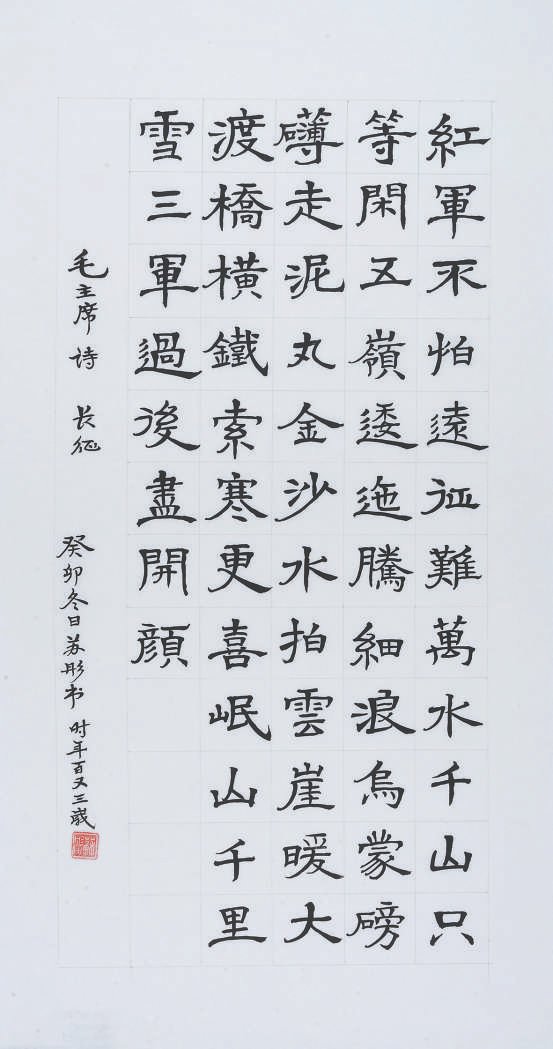 紅軍不怕遠征難萬水千山只
等閑五嶺逶迤騰細浪烏蒙磅
礴走泥丸金沙水拍雲崖暖大
渡橋橫鐵索寒更喜岷山千里
雪三軍過後盡開顔
毛主席诗 长征
癸卯冬日苏彤书 时年百又三歲